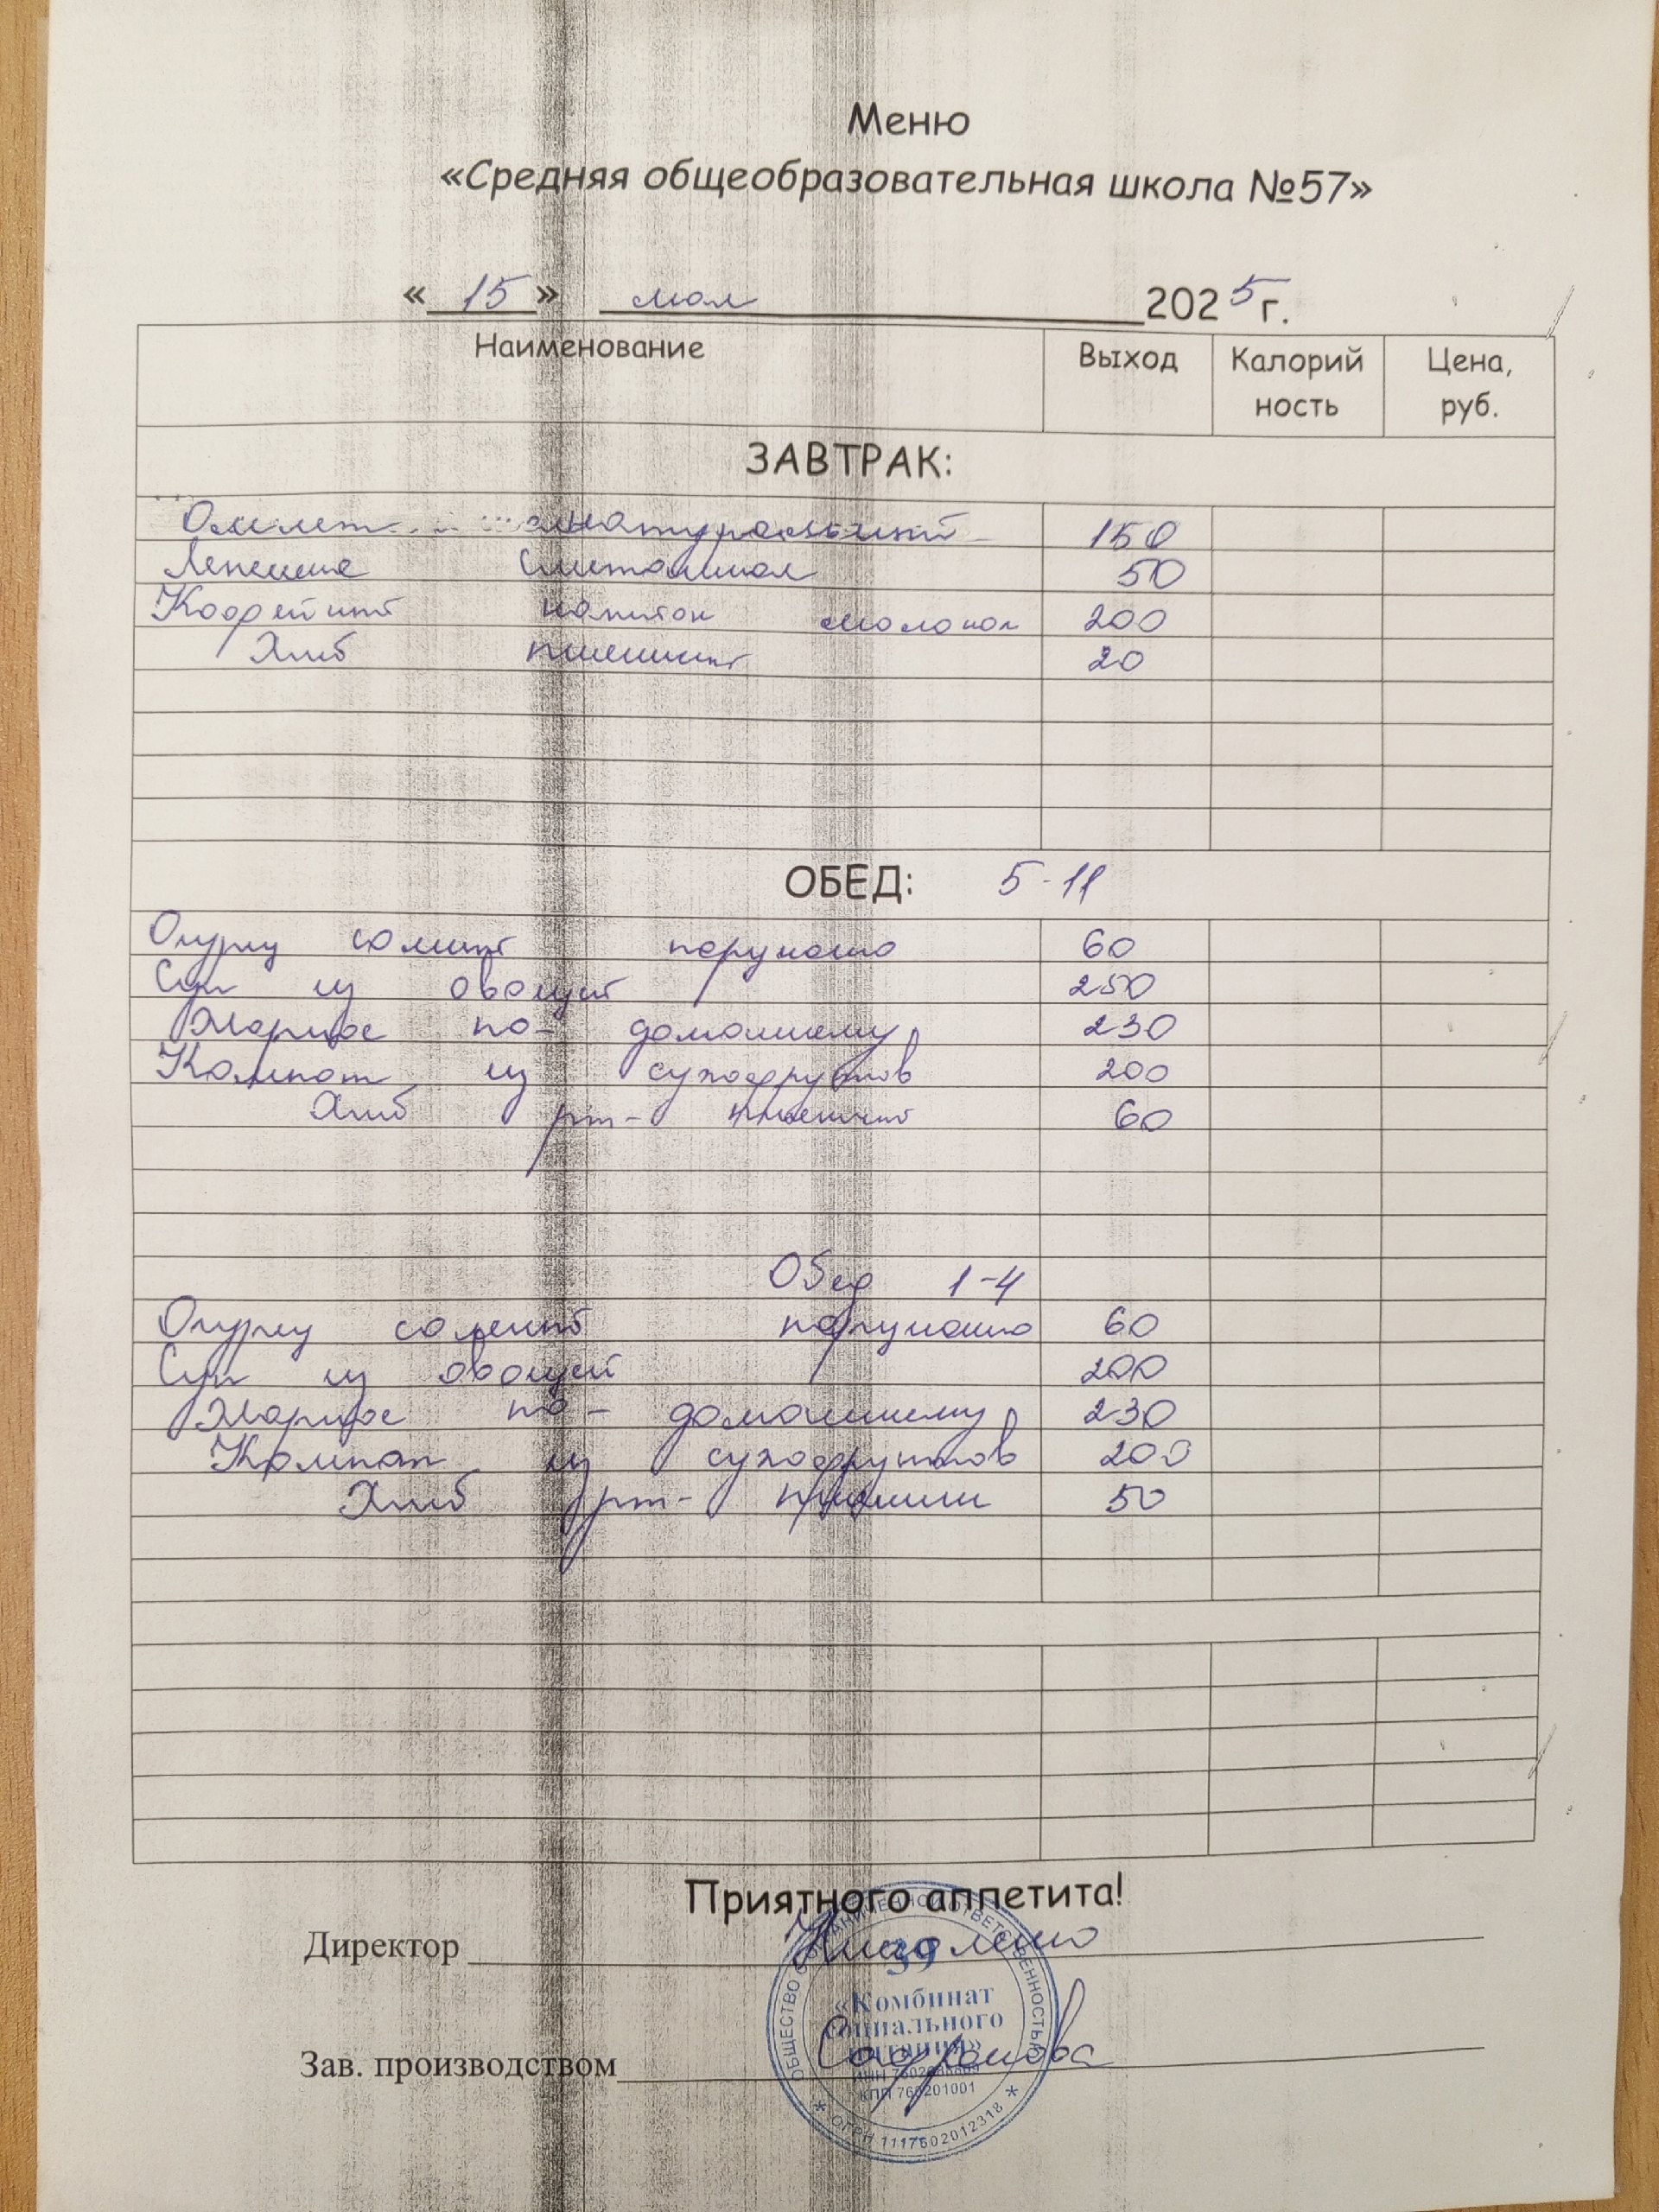 Меню
«Средняя общеобразовательная школа №57»
« 15 » мая 2025 г.
Наименование Выход Калорий ность Цена, руб.
ЗАВТРАК:
Омлет натуральный 150
Лепешка сметанная 50
Кофейный напиток молоком 200
Хлеб пшеничный 20
ОБЕД: 5-11
Огурец соленый порционно 60
Суп из овощей 250
Жаркое по-домашнему 230
Компот из сухофруктов 200
Хлеб рж- пшеничный 60
Обед 1-4
Огурец соленый порционно 60
Суп из овощей 200
Жаркое по-домашнему 230
Компот из сухофруктов 200
Хлеб рж- пшенич 50
Приятного аппетита!
Директор
39
«Комбинат
социального
питания»
КПП 760201001
ОГРН 1117602012318
ОБЩЕСТВО С ОГРАНИЧЕННОЙ ОТВЕТСТВЕННОСТЬЮ
Зав. производством Сафронова